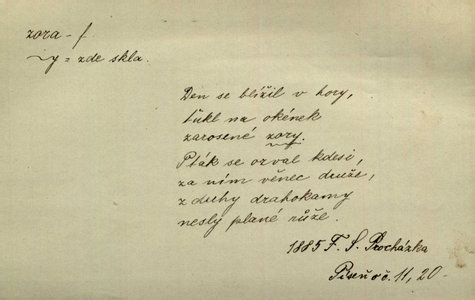 zora - f.
~y = zde skla.
Den se blížil v hory,
ťukl na okének
zarosené zory.
Pták se ozval kdesi,
za ním věnec druže,
z duhy drahokamy
nesly plané růže.
1885 F. S. Procházka
Píseň č. 11, 20.